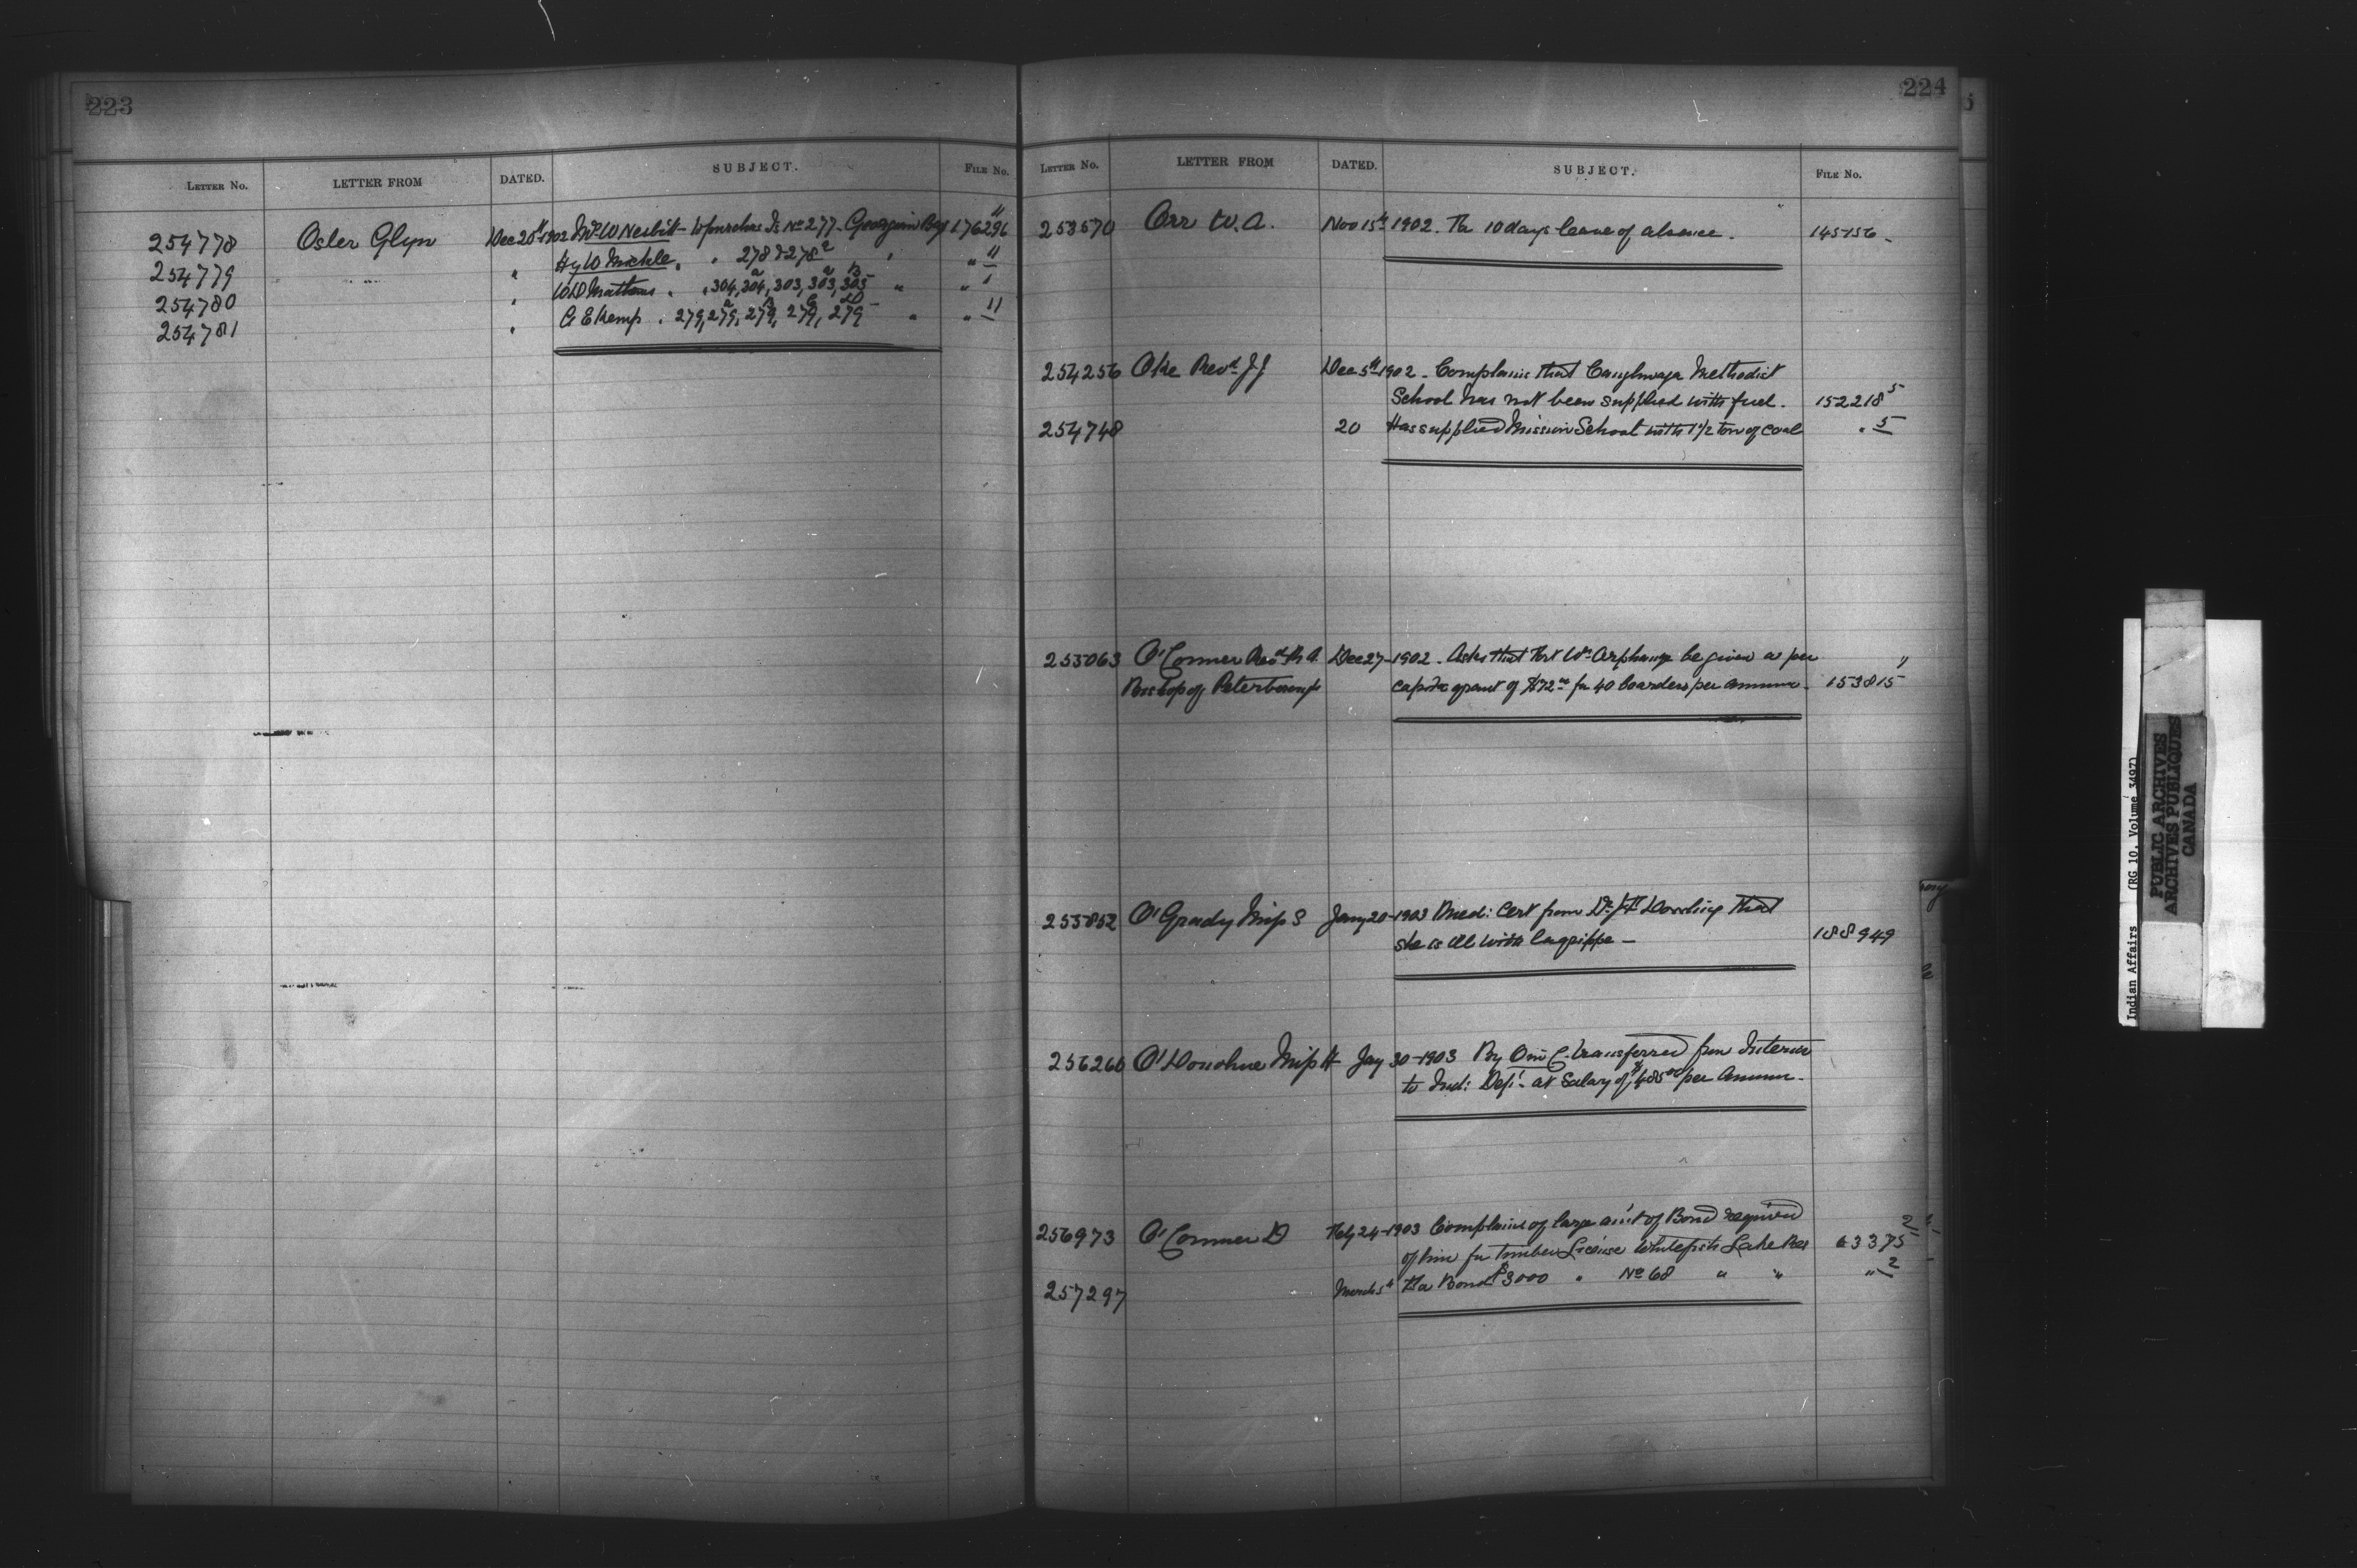 223
LETTER No. LETTER FROM DATED. SUBJECT. FILE No.
254778 Osler Glyn Dec 20th 1902 Mr W Nesbitt - to purchase Is No 277 - Georgian Bay 176296 "
254779 " Hy W Mickle " " 278 & 278a " " "
254780 " W D Matthews " " 304, 304a, 303, 303a, 303B " "
254781 " A E Kemp " 279, 279a, 279B, 279C, 279D - " " 11
224
LETTER No. LETTER FROM DATED. SUBJECT. FILE No.
253570 Orr W. A. Nov 15th 1902. Th 10 days leave of absence. 145156 -
254256 Oke Revd J J Dec 5th 1902 - Complains that Caughnwaga Methodist
School has not been supplied with fuel. 152218 5
254748 20 Has supplied Mission School with 1 1/2 ton of coal " 5
255063 O'Connor Revd R A. Dec 27 - 1902 - Asks that Fort Wm Orphanage be given a per "
Bishop of Peterborough capita grant of $72 00 for 40 boarders per annum - 153815
255852 O'Grady Miss S Jany 20 - 1903 Med: Cert from Dr Dowling that
she is ill with lagrippe - 188949
256260 O'Donohue Miss H Jay 30 - 1903 By O in C. transferred from Interior
to Ind: Dept - at Salary of $485 00 per Annum -
256973 O'Connor D Feby 24 - 1903 Complains of large am't of Bond required 2
of him for timber License Whitefish Lake Res 63375
257297 March 5th Ha Bond $3000 " No 68 " " " 2
Indian Affairs (RG 10, Volume 3497)
PUBLIC ARCHIVES
ARCHIVES PUBLIQUES
CANADA